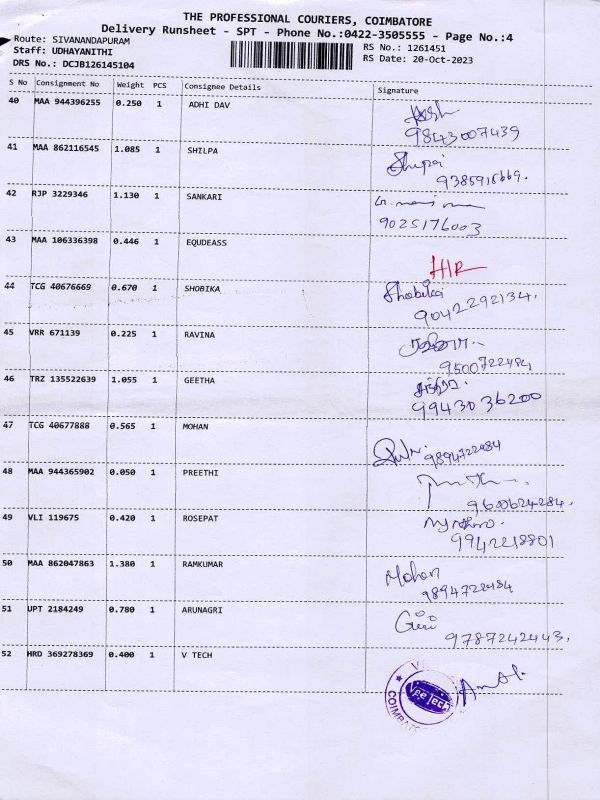 THE PROFESSIONAL COURIERS, COIMBATORE
Delivery Runsheet - SPT - Phone No.:0422-3505555 - Page No.:4
Route: SIVANANDAPURAM
RS No.: 1261451
Staff: UDHAYANITHI
RS Date: 20-Oct-2023
DRS No.: DCJB126145104
S No Consignment No Weight PCS Consignee Details Signature
40 MAA 944396255 0.250 1 ADHI DAV
9843007439
41 MAA 862116545 1.085 1 SHILPA
42 RJP 3229346 1.130 1 SANKARI
9025176003
43 MAA 106336398 0.446 1 EQUDEASS
HIR
44 TCG 40676669 0.670 1 SHOBIKA
Shobika
9042292134.
45 VRR 671139 0.225 1 RAVINA
9500722484
46 TRZ 135522639 1.055 1 GEETHA
9943036200
47 TCG 40677888 0.565 1 MOHAN
9894722484
48 MAA 944365902 0.050 1 PREETHI
9600624284.
49 VLI 119675 0.420 1 ROSEPAT
9942218801
50 MAA 862047863 1.380 1 RAMKUMAR
Mohan
9894722484
51 UPT 2184249 0.780 1 ARUNAGRI
Giri
9787242443.
52 HRD 369278369 0.400 1 V TECH
Vee Tech